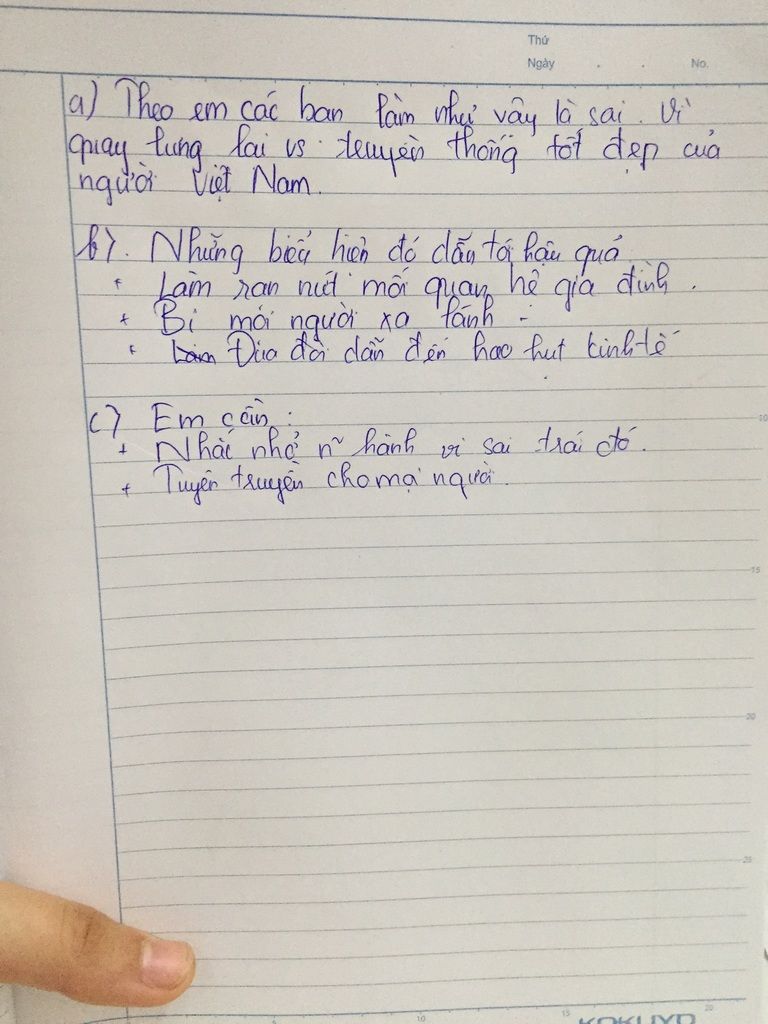 Thứ
Ngày . . No.
a) Theo em các bạn làm như vậy là sai. Vì
quay lưng lại vs truyền thống tốt đẹp của
người Việt Nam.
b). Những biểu hiện đó dẫn tới hậu quả
+ Làm rạn nứt mối quan hệ gia đình.
+ Bị mọi người xa lánh -
+ Đua đòi dẫn đến hao hụt kinh tế
c) Em cần:
+ Nhắc nhở n~ hành vi sai trái đó.
+ Tuyên truyền cho mọi người.
10
15
20
25
10 15 20
KOKUYO